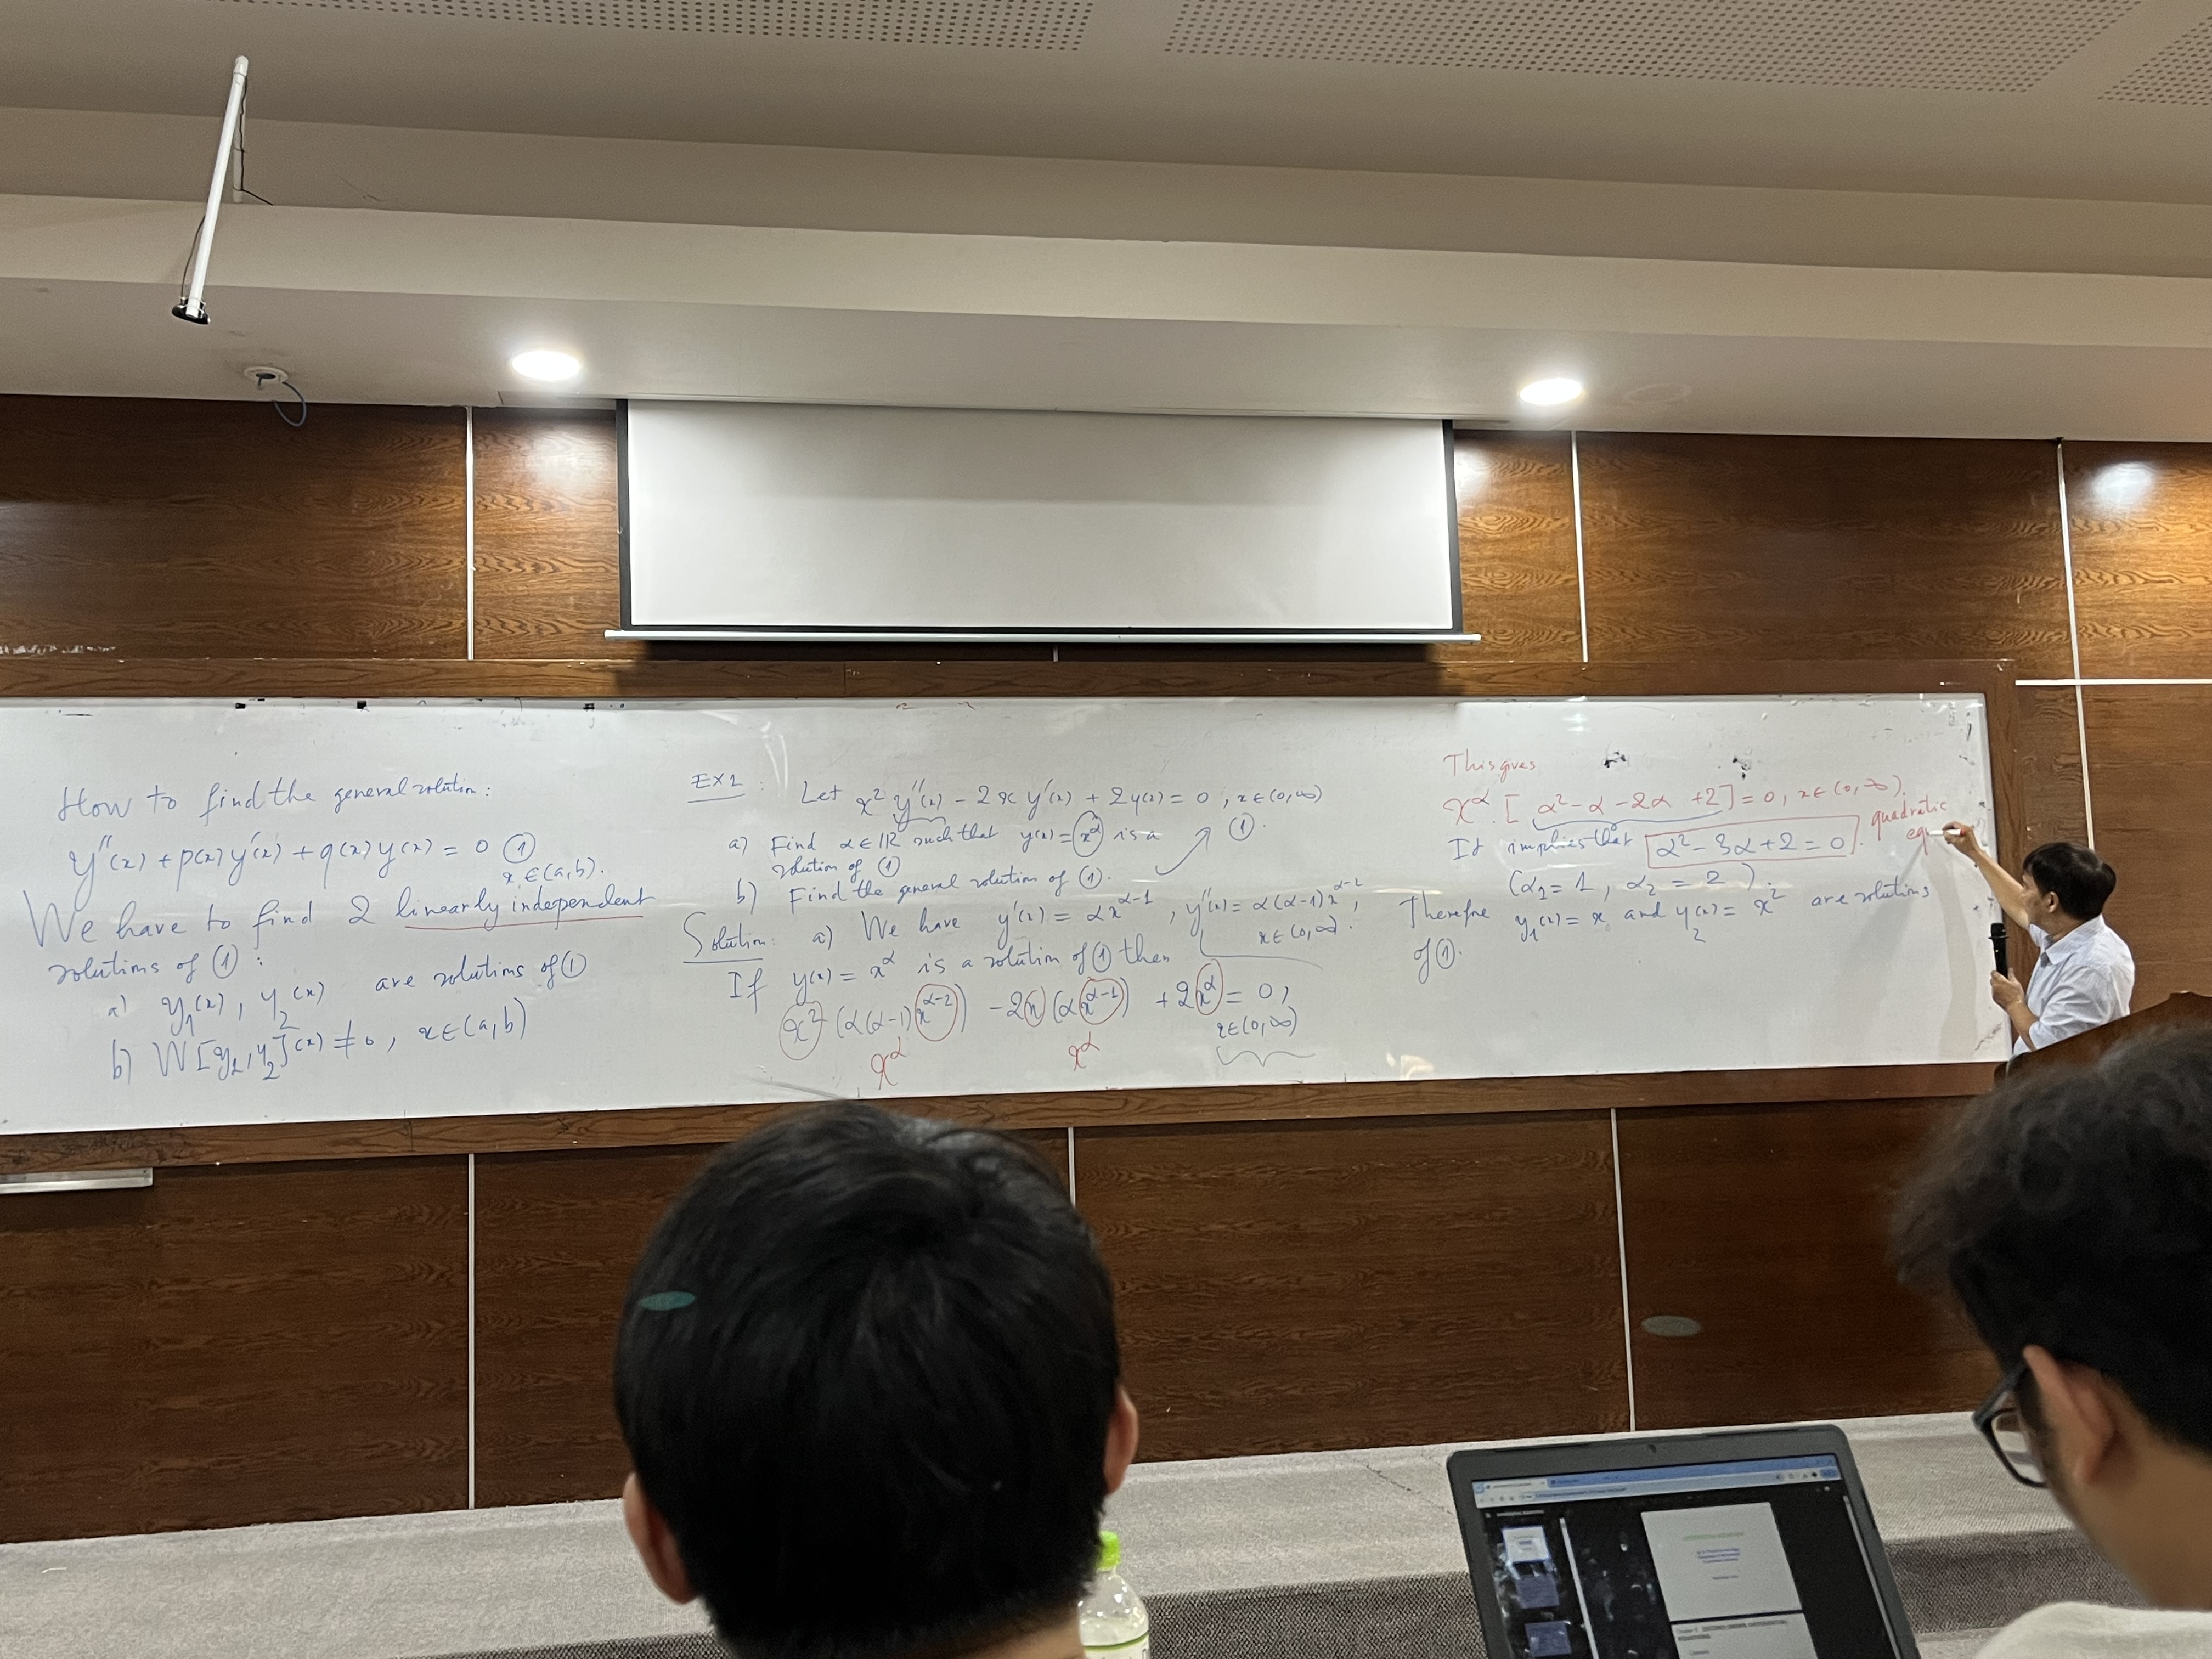 How to find the general solution:
y''(x) + p(x) y'(x) + q(x) y(x) = 0 ①
x ∈ (a,b).
We have to find 2 linearly independent
solutions of ①:
a) y₁(x), y₂(x) are solutions of ①
b) W[y₁, y₂](x) ≠ 0, x ∈ (a,b)
EX1: Let x² y''(x) - 2x y'(x) + 2y(x) = 0, x ∈ (0,∞)
①.
a) Find α ∈ ℝ such that y(x) = x^α is a
solution of ①
b) Find the general solution of ①.
Solution: a) We have y'(x) = αx^(α-1), y''(x) = α(α-1)x^(α-2),
x ∈ (0,∞).
If y(x) = x^α is a solution of ① then
x² (α(α-1) x^(α-2)) - 2x (α x^(α-1)) + 2x^α = 0,
x ∈ (0,∞)
x^α x^α
This gives
x^α. [α² - α - 2α + 2] = 0, x ∈ (0,∞).
It implies that α² - 3α + 2 = 0. quadratic
equ
(α₁ = 1, α₂ = 2).
Therefore y₁(x) = x and y₂(x) = x² are solutions
of ①.